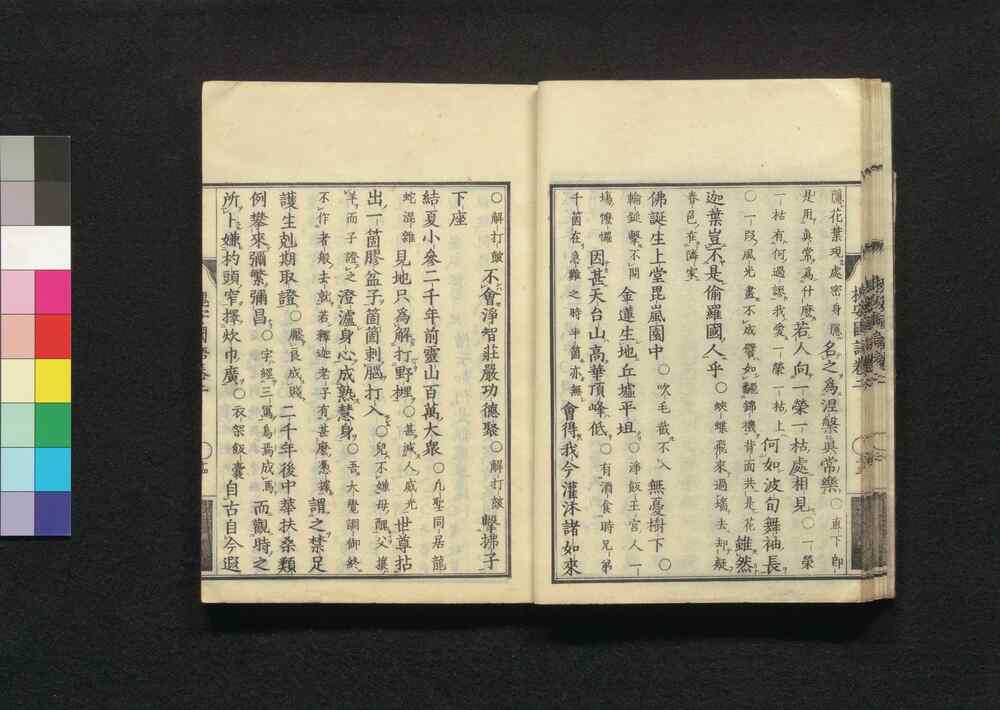 隱花葉現處密身應名之為涅槃真常樂○直下卽
是用真常為什麼若人向一榮一枯處相見○一榮
一枯有何過認我愛一榮一枯上何如波旬舞袖長
○一段風光畫不成譬如飜錦機背面共是花雖然
迦葉豈不是偷羅國人乎○蛺蝶飛來過墻去却疑
春色在隣家
佛誕生上堂毘嵐園中○吹毛截不入無憂樹下○
輪鎚擊不開金蓮生地丘墟平坦○淨飯王宮人一
場懡㦬因甚天台山高華頂峰低○有酒食時兄弟
千箇在急難之時半箇亦無會得我今灌沐諸如來
○解打皷不會淨智莊嚴功德聚○解打皷擊拂子
下座
結夏小參二千年前靈山百萬大衆○凡聖同居龍
蛇混雜見地只為解打野榸○甚滅人威光世尊拈
出一箇膠盆子箇箇刺腦打入○兒不嫌母醜父攘
羊而子證之澄濾身心成熟慧身○吾大覺調御終
不作者般去就若釋迦老子有甚麼憑據謂之禁足
護生剋期取證○壓良成賤二千年後中華扶桑類
例攀來彌繁彌昌○字經三寫烏焉成馬而觀時之
所卜嫌杓頭窄擇炊巾廣○衣架飯囊自古自今遐